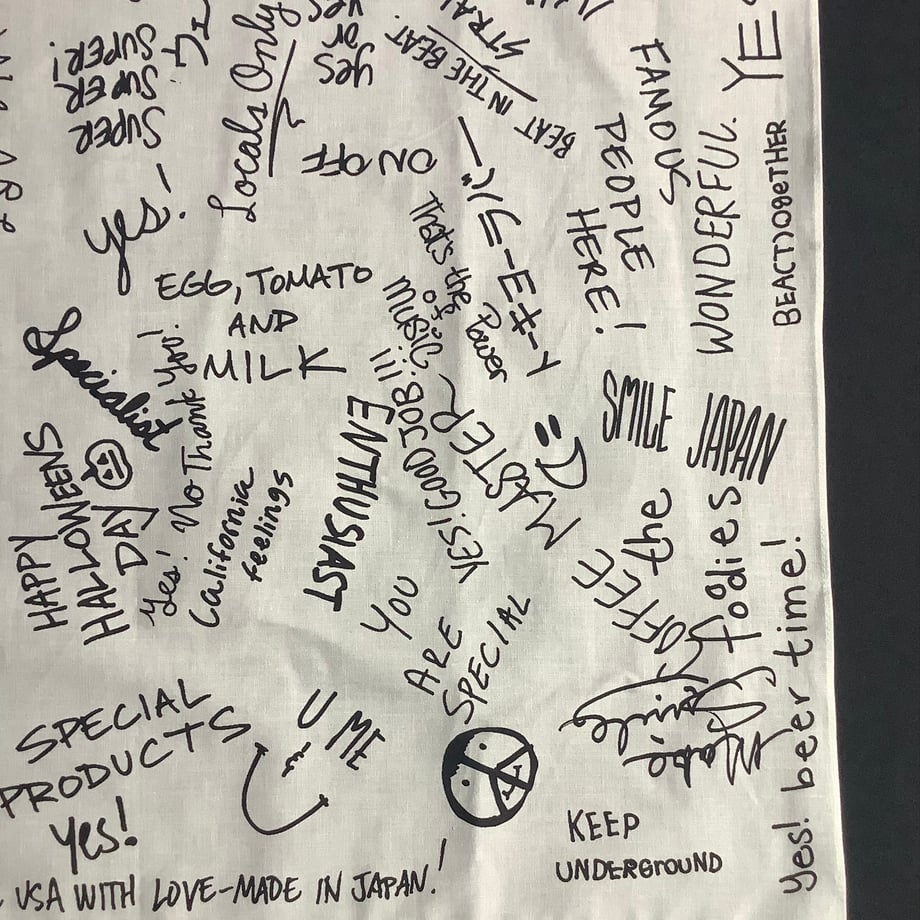 SUPER
SUPER
SUPER!
Locals Only
yes
or
yes
STRA
BEAT IN THE BEAT
ON OFF
yes!
FAMOUS
PEOPLE
HERE!
WONDERFUL
YE
BEACTJOGETHER
That's the
Power
of
music
EGG, TOMATO
AND
MILK
Specialist
Yes! No Thank You!
HAPPY
HALLOWEENS
DAY
California
feelings
ENTHUSIAST
YES! GOOD JOB!!!
COFFEE
MASTER
SMILE
JAPAN
the
foodies
YOU
ARE
SPECIAL
SPECIAL
PRODUCTS
Yes!
U & ME
Make
Smile
yes! beer time!
KEEP
UNDERGROUND
USA WITH LOVE-MADE IN JAPAN!